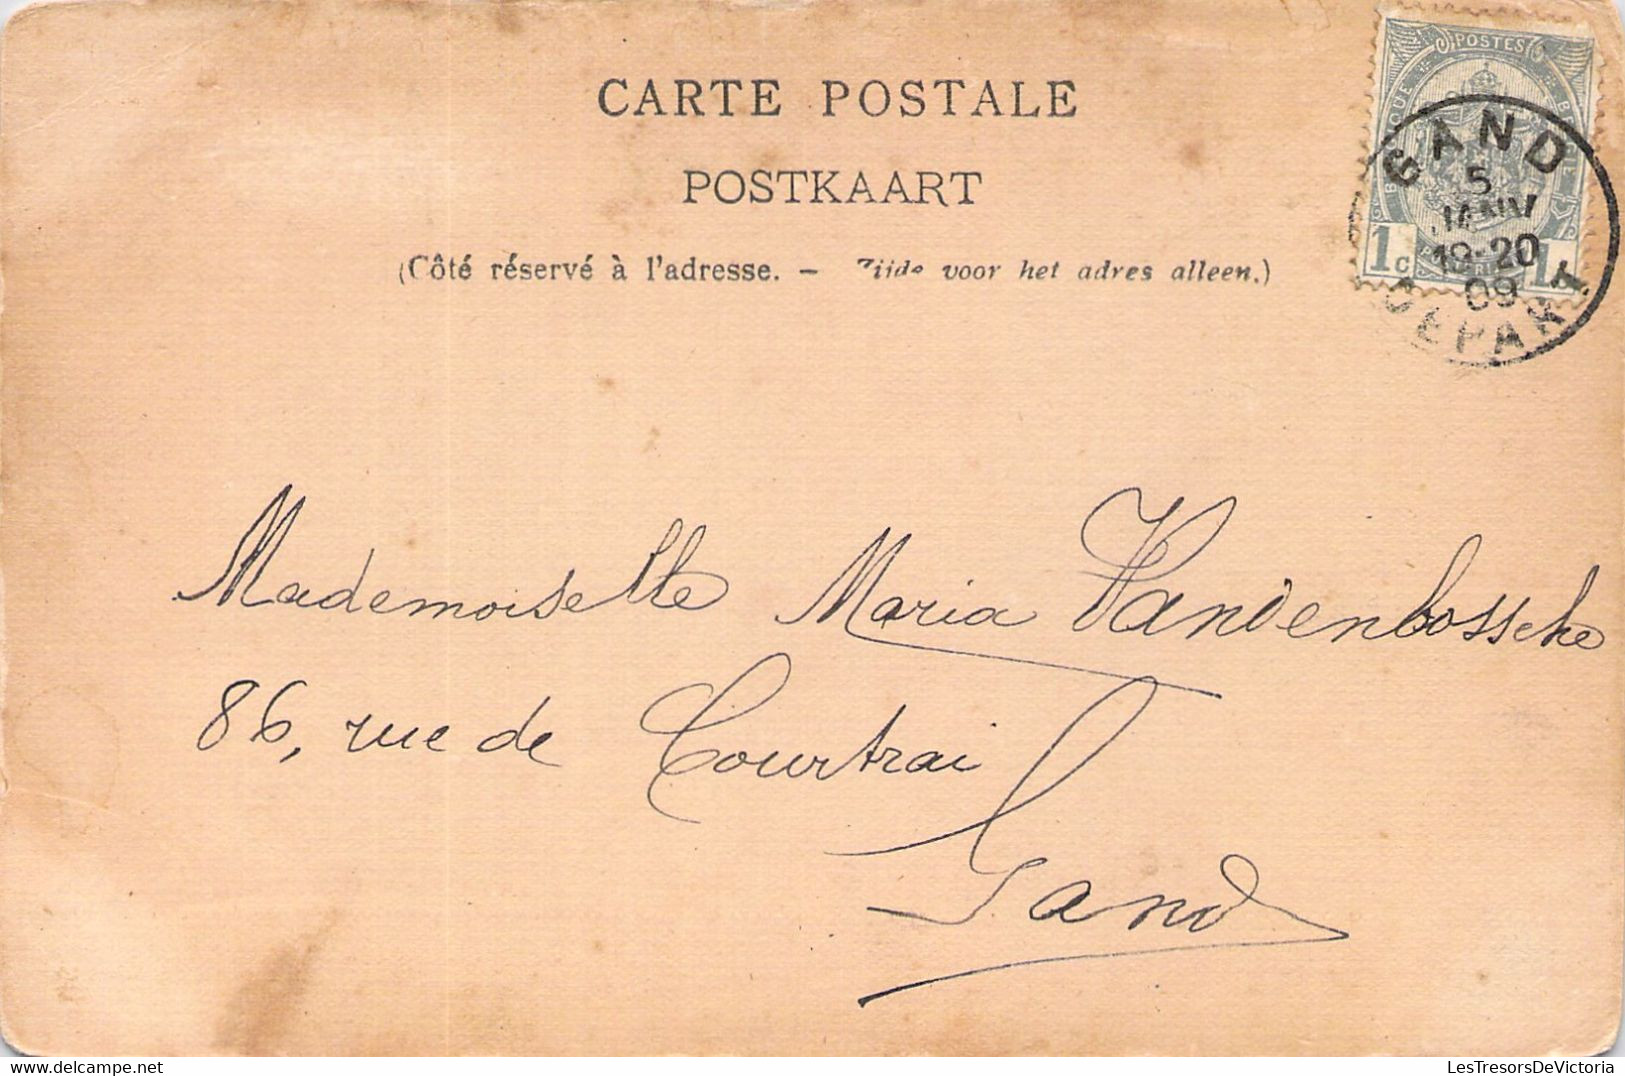 CARTE POSTALE
POSTKAART
(Côté réservé à l'adresse. – Zijde voor het adres alleen.)
POSTES
BELGIQUE BELGIË
1c 1c
GAND
5
JANV
19-20
09
DEPART
Mademoiselle Maria Vandenbossche
86, rue de Courtrai
Gand
LesTresorsDeVictoria